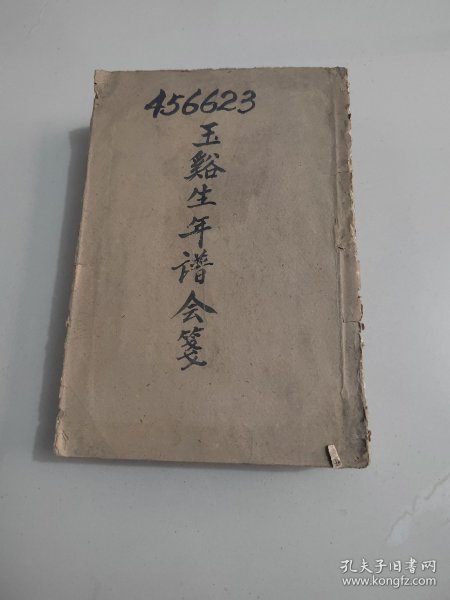 456623
玉谿生年谱会箋
孔夫子旧书网
www.kongfz.com